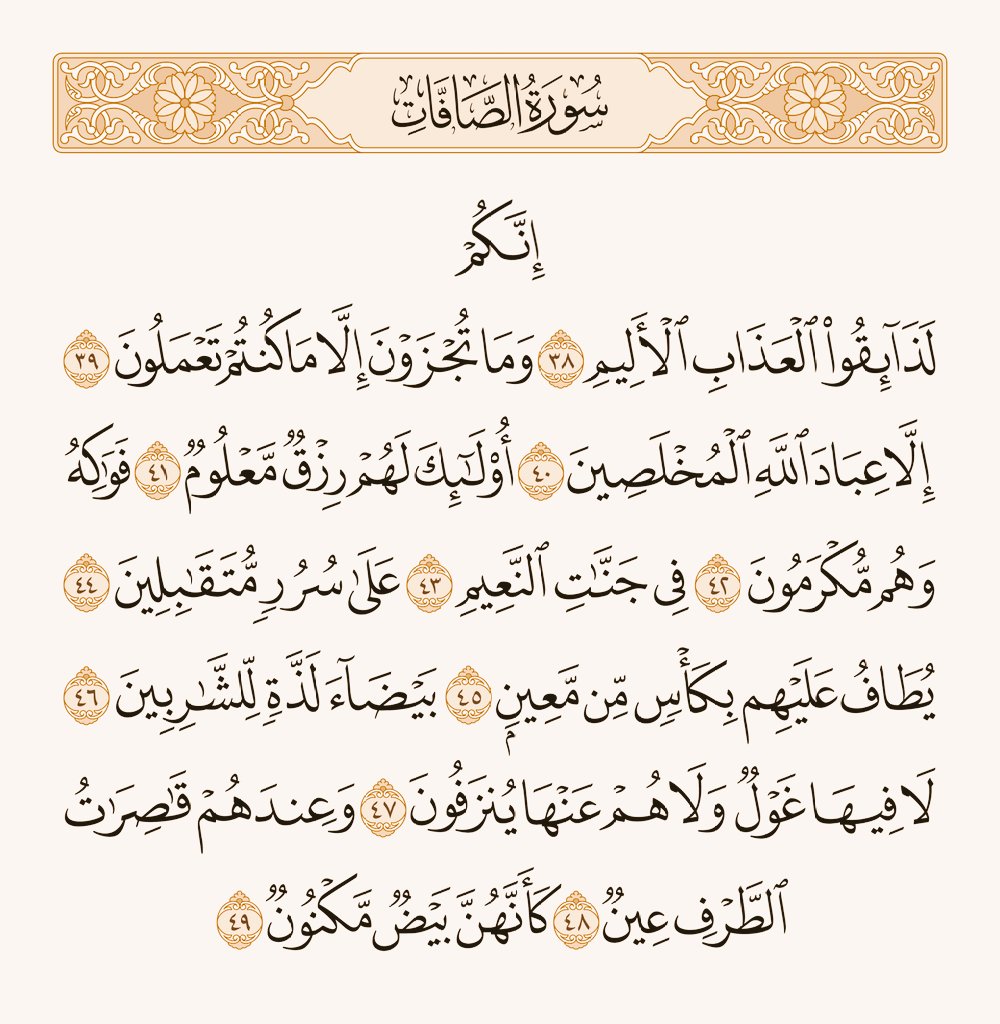 سُورَةُ الصَّافَّاتِ
إِنَّكُمْ
لَذَآئِقُوا۟ ٱلْعَذَابِ ٱلْأَلِيمِ ٣٨ وَمَا تُجْزَوْنَ إِلَّا مَا كُنتُمْ تَعْمَلُونَ ٣٩
إِلَّا عِبَادَ ٱللَّهِ ٱلْمُخْلَصِينَ ٤٠ أُو۟لَـٰٓئِكَ لَهُمْ رِزْقٌ مَّعْلُومٌ ٤١ فَوَٰكِهُ
وَهُم مُّكْرَمُونَ ٤٢ فِى جَنَّـٰتِ ٱلنَّعِيمِ ٤٣ عَلَىٰ سُرُرٍ مُّتَقَـٰبِلِينَ ٤٤
يُطَافُ عَلَيْهِم بِكَأْسٍ مِّن مَّعِينٍۭ ٤٥ بَيْضَآءَ لَذَّةٍ لِّلشَّـٰرِبِينَ ٤٦
لَا فِيهَا غَوْلٌ وَلَا هُمْ عَنْهَا يُنزَفُونَ ٤٧ وَعِندَهُمْ قَـٰصِرَٰتُ
ٱلطَّرْفِ عِينٌ ٤٨ كَأَنَّهُنَّ بَيْضٌ مَّكْنُونٌ ٤٩